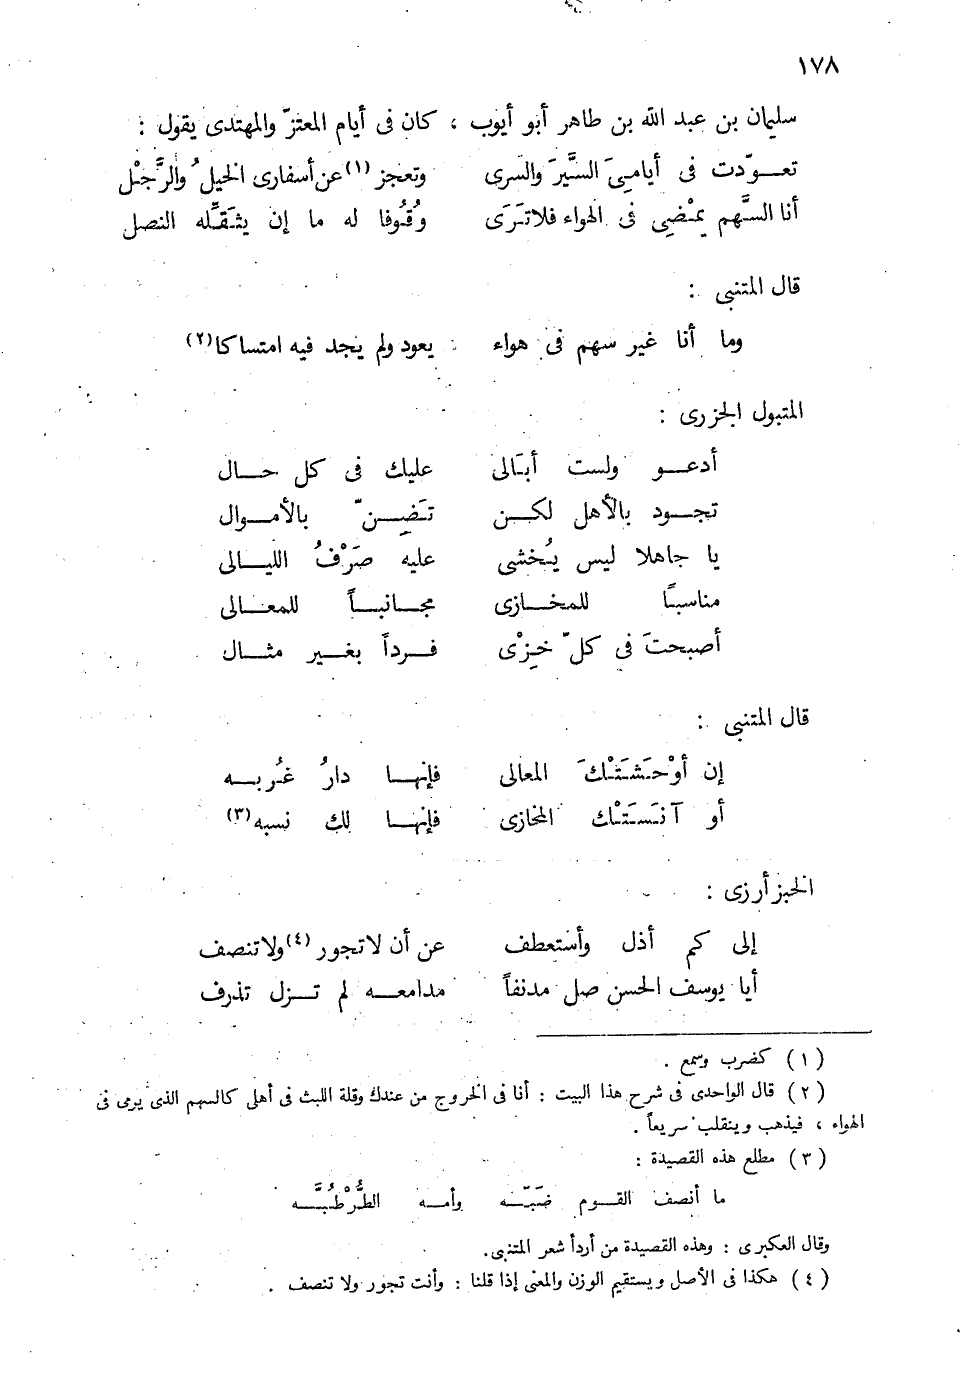 ١٧٨
سليمان بن عبد الله بن طاهر أبو أيوب ، كان فى أيام المعتزّ والمهتدى يقول :
تعـــوّدت فى أيامىَ السَّيرَ والسرى وتعجز (١) عن أسفارى الخيلُ والرَّجْل
أنا السَّهم يمْضِى فى الهواء فلا تَرَى وُقُوفا له ما إن يثَقِّله النصل
قال المتنبى :
وما أنا غير سهم فى هواء يعود ولم يجد فيه امتساكا (٢)
المتبول الجزرى :
أدعـــو ولست أبَالى عليك فى كل حـــال
تجـــود بالأهل لكـــن تَضِـــنّ بالأمـــوال
يا جاهلا ليس يُخشى عليه صَرْفُ الليـــالى
مناسبًا للمخـــازى مجـــانبـــاً للمعـــالى
أصبحتَ فى كلّ خِزْى فـــرداً بغـــير مثـــال
قال المتنبى :
إن أوْحَشَتْكَ المعالى فإنهـــا دارُ غُربـــه
أو آنَسَتْك المخازى فإنهـــا لك نسبه (٣)
الخبز أرزى :
إلى كم أذل وأستعطف عن أن لا تجور (٤) ولا تنصف
أيا يوسف الحسن صل مدنفاً مدامعـــه لم تـــزل تذرف
( ١ ) كضرب وسمع .
( ٢ ) قال الواحدى فى شرح هذا البيت : أنا فى الخروج من عندك وقلة اللبث فى أهلى كالسهم الذى يرمى فى
الهواء ، فيذهب وينقلب سريعاً .
( ٣ ) مطلع هذه القصيدة :
ما أنصف القـــوم ضَبَّـــه وأمـــه الطُّرْطُبَّـــه
وقال العكبرى : وهذه القصيدة من أردأ شعر المتنبى.
( ٤ ) هكذا فى الأصل ويستقيم الوزن والمعنى إذا قلنا : وأنت تجور ولا تنصف .